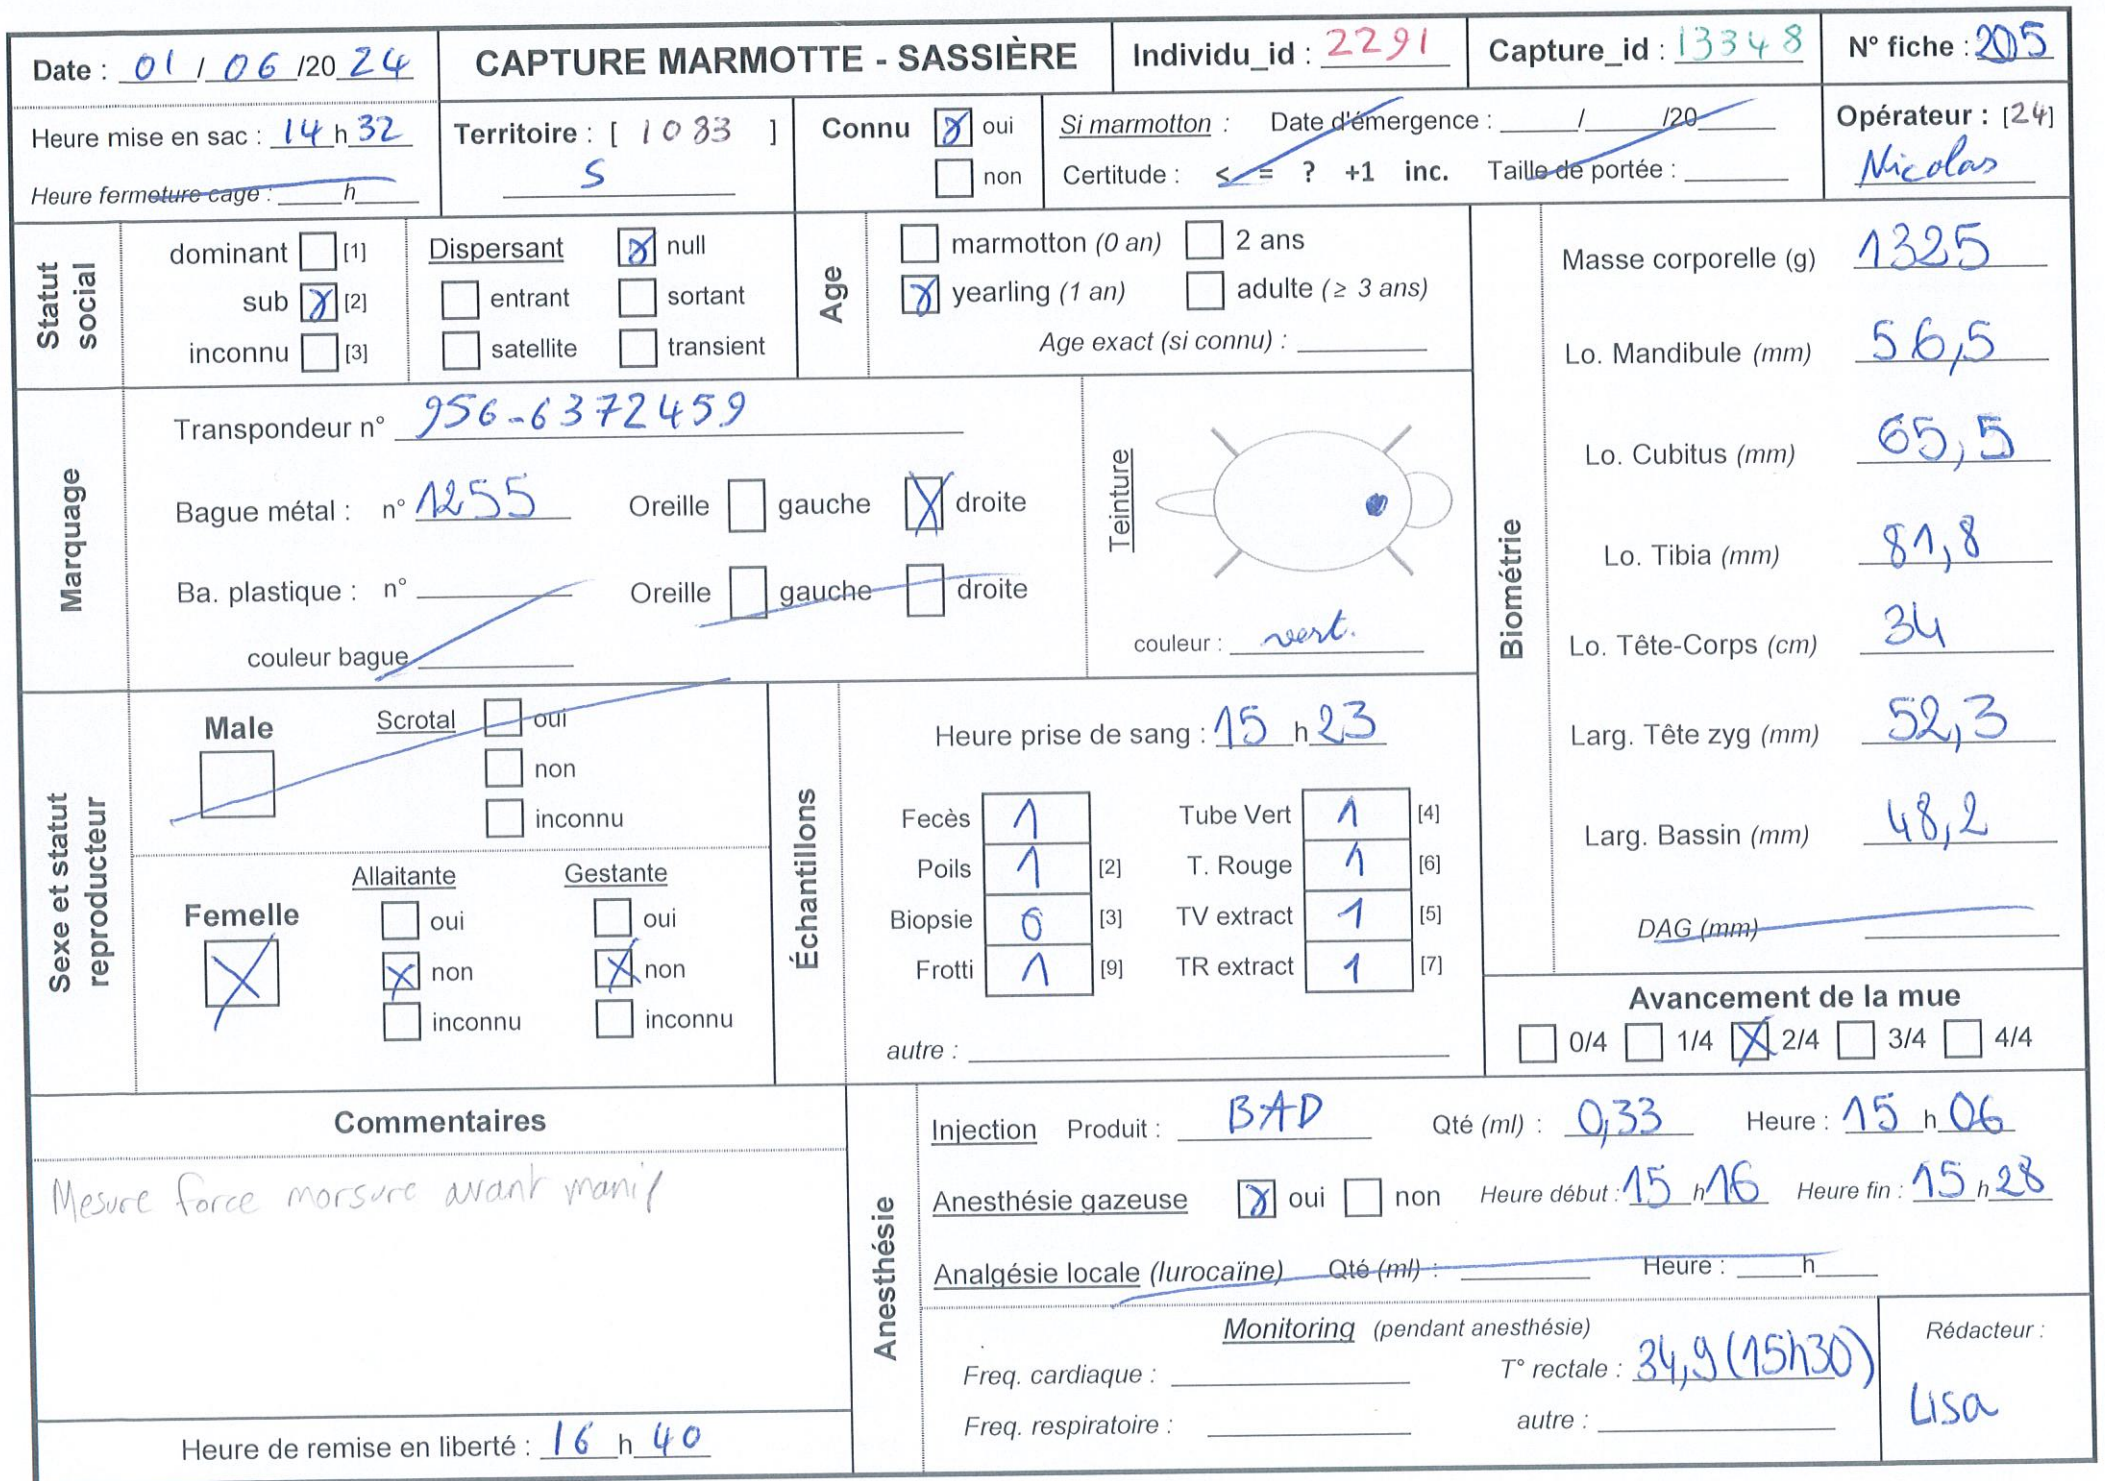 Date : 01 / 06 /20 24
CAPTURE MARMOTTE - SASSIÈRE
Individu_id : 2291
Capture_id : 13348
N° fiche : 205
Heure mise en sac : 14 h 32
Heure fermeture cage : ____h____
Territoire : [ 1083 ]
S
Connu oui
non
Si marmotton : Date d'émergence : ____/____/20____
Certitude : < = ? +1 inc. Taille de portée :
Opérateur : [24]
Nicolas
Statut social
dominant [1]
sub [2]
inconnu [3]
Dispersant null
entrant sortant
satellite transient
Age
marmotton (0 an) 2 ans
yearling (1 an) adulte (≥ 3 ans)
Age exact (si connu) :
Marquage
Transpondeur n° 956-6372459
Bague métal : n° 1255 Oreille gauche droite
Ba. plastique : n° Oreille gauche droite
couleur bague
Teinture
couleur : vert.
Biométrie
Masse corporelle (g) 1325
Lo. Mandibule (mm) 56,5
Lo. Cubitus (mm) 65,5
Lo. Tibia (mm) 81,8
Lo. Tête-Corps (cm) 34
Larg. Tête zyg (mm) 52,3
Larg. Bassin (mm) 48,2
DAG (mm)
Sexe et statut reproducteur
Male Scrotal oui
non
inconnu
Femelle
Allaitante Gestante
oui oui
non non
inconnu inconnu
Échantillons
Heure prise de sang : 15 h 23
Fecès 1 Tube Vert 1 [4]
Poils 1 [2] T. Rouge 1 [6]
Biopsie 0 [3] TV extract 1 [5]
Frotti 1 [9] TR extract 1 [7]
autre :
Avancement de la mue
0/4 1/4 2/4 3/4 4/4
Commentaires
Mesure force morsure avant manip
Heure de remise en liberté : 16 h 40
Anesthésie
Injection Produit : BAD Qté (ml) : 0,33 Heure : 15 h 06
Anesthésie gazeuse oui non Heure début : 15 h 16 Heure fin : 15 h 28
Analgésie locale (lurocaïne) Qté (ml) : Heure : ____h____
Monitoring (pendant anesthésie)
Freq. cardiaque : T° rectale : 34,9 (15h30)
Freq. respiratoire : autre :
Rédacteur :
Lisa